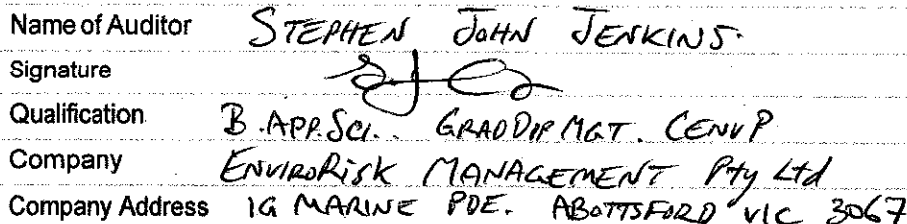 Name of Auditor STEPHEN JOHN JENKINS.
Signature
Qualification B.APP.SCI.. GRAD DIP MGT. CENVP
Company ENVIRORISK MANAGEMENT Pty Ltd
Company Address 1G MARINE PDE. ABOTTSFORD VIC 3067